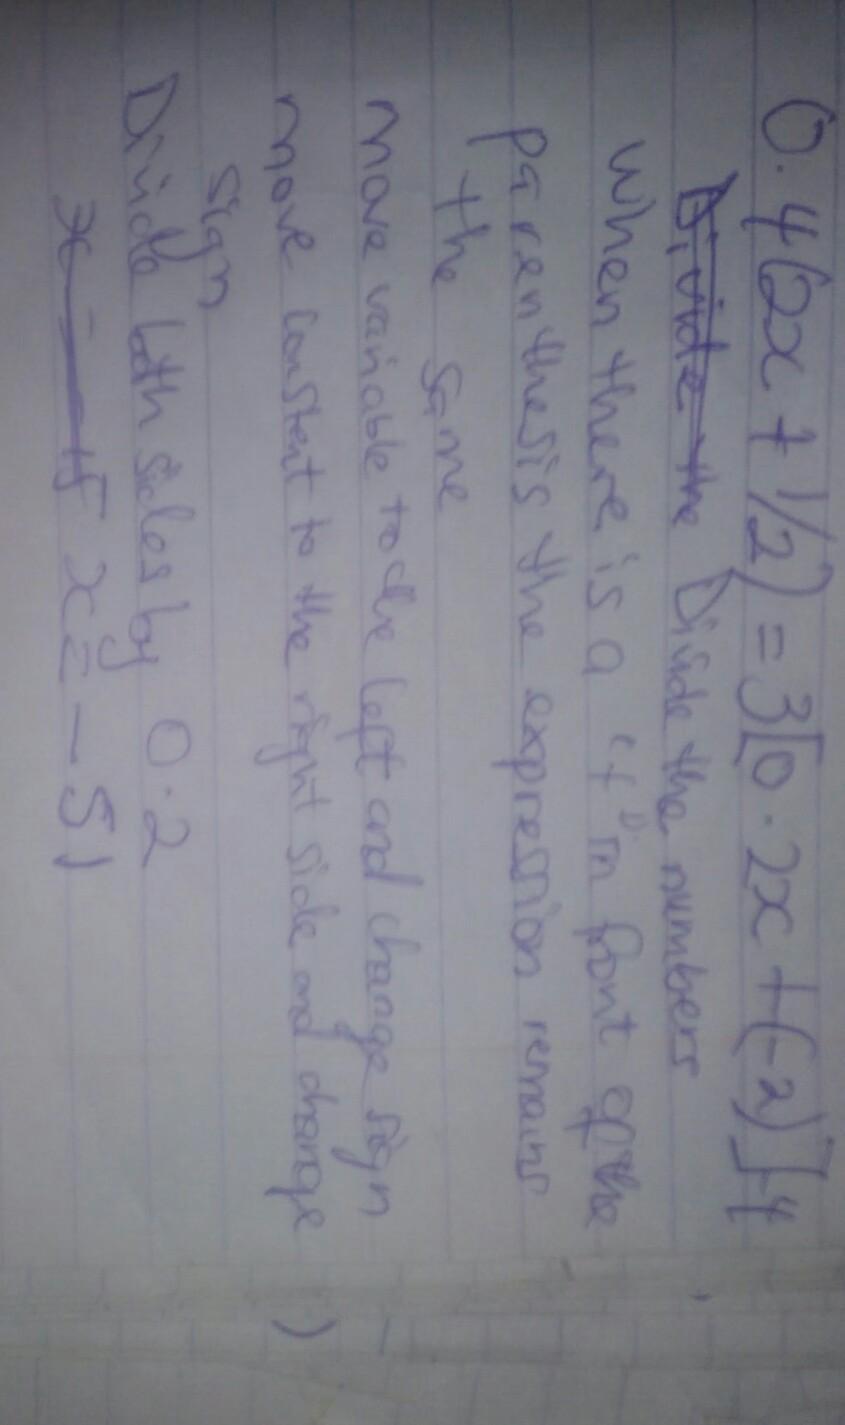 0.4(2x + 1/2) = 3[0.2x + (-2)] -4
Divide the Divide the numbers
When there is a "+" in front of the
parenthesis the expression remains
the same
Move variable to the left and change sign
Move constant to the right side and change
sign
Divide both sides by 0.2
x = -51